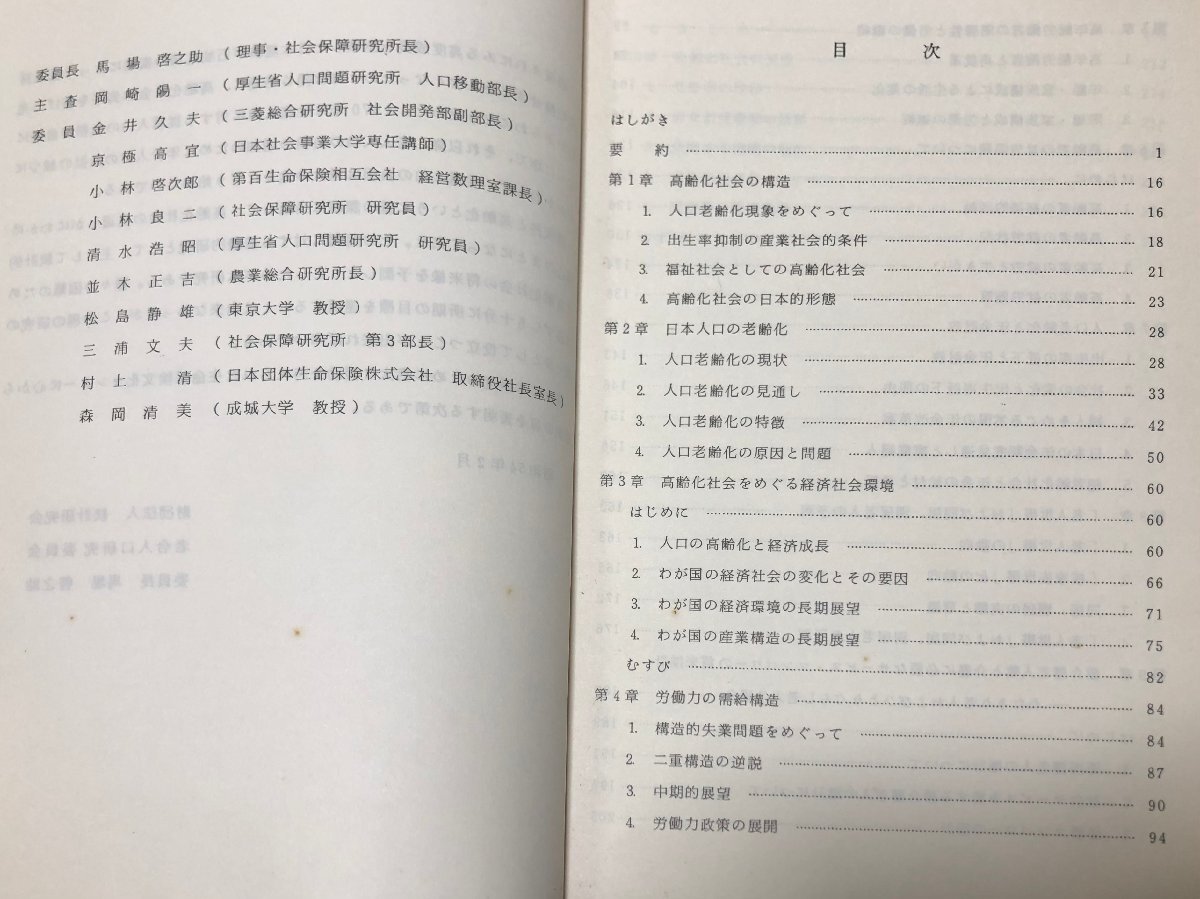 委員長 馬場啓之助 (理事・社会保障研究所長)
主査 岡崎陽一 (厚生省人口問題研究所 人口移動部長)
委員 金井久夫 (三菱総合研究所 社会開発部副部長)
京極高宜 (日本社会事業大学専任講師)
小林啓次郎 (第百生命保険相互会社 経営数理室課長)
小林良二 (社会保障研究所 研究員)
清水浩昭 (厚生省人口問題研究所 研究員)
並木正吉 (農業総合研究所長)
松島静雄 (東京大学 教授)
三浦文夫 (社会保障研究所 第3部長)
村上清 (日本団体生命保険株式会社 取締役社長室長)
森岡清美 (成城大学 教授)
目次
はしがき
要約 …… 1
第1章 高齢化社会の構造 …… 16
1. 人口老齢化現象をめぐって …… 16
2. 出生率抑制の産業社会的条件 …… 18
3. 福祉社会としての高齢化社会 …… 21
4. 高齢化社会の日本的形態 …… 23
第2章 日本人口の老齢化 …… 28
1. 人口老齢化の現状 …… 28
2. 人口老齢化の見通し …… 33
3. 人口老齢化の特徴 …… 42
4. 人口老齢化の原因と問題 …… 50
第3章 高齢化社会をめぐる経済社会環境 …… 60
はじめに …… 60
1. 人口の高齢化と経済成長 …… 60
2. わが国の経済社会の変化とその要因 …… 66
3. わが国の経済環境の長期展望 …… 71
4. わが国の産業構造の長期展望 …… 75
むすび …… 82
第4章 労働力の需給構造 …… 84
1. 構造的失業問題をめぐって …… 84
2. 二重構造の逆説 …… 87
3. 中期的展望 …… 90
4. 労働力政策の展開 …… 94